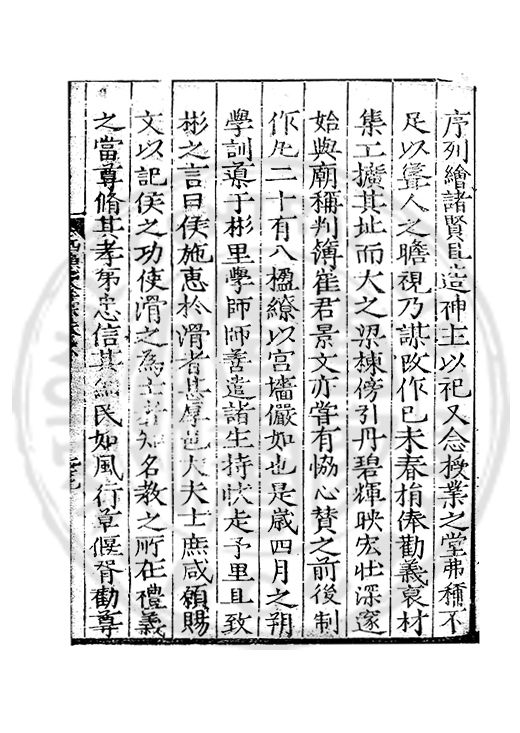 序列繪諸賢且造神主以祀又念授業之堂弗稱不
足以聳人之瞻視乃謀改作已未春捐俸勸義裒材
集工擴其址而大之梁棟傍引丹碧輝映宏壯深邃
始與廟稱判簿崔君景文亦嘗有恊心賛之前後制
作凡二十有八楹繚以宫墻儼如也是嵗四月之朔
學訓導于彬里學師師善遣諸生持状走予里且致
彬之言曰侯施恵扵滑者甚厚邑大夫士庶咸願賜
文以記侯之功使滑之為士者知名教之所在禮義
之當尊脩其孝弟忠信其為民如風行草偃胥勸尊